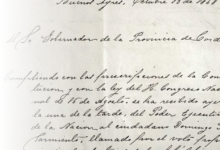 Buenos Ayres, Octubre 12 de 1868
A S. E. el Gobernador de la Provincia de Cord
Cumpliendo con las prescripciones de la Cons
titucion, y con la ley del H. Congreso Nacio
nal de 16 de Agosto, se ha recibido ayer
la una de la tarde, del Poder Ejecuti
de la Nacion, el ciudadano Domingo
Sarmiento, llamado por el voto